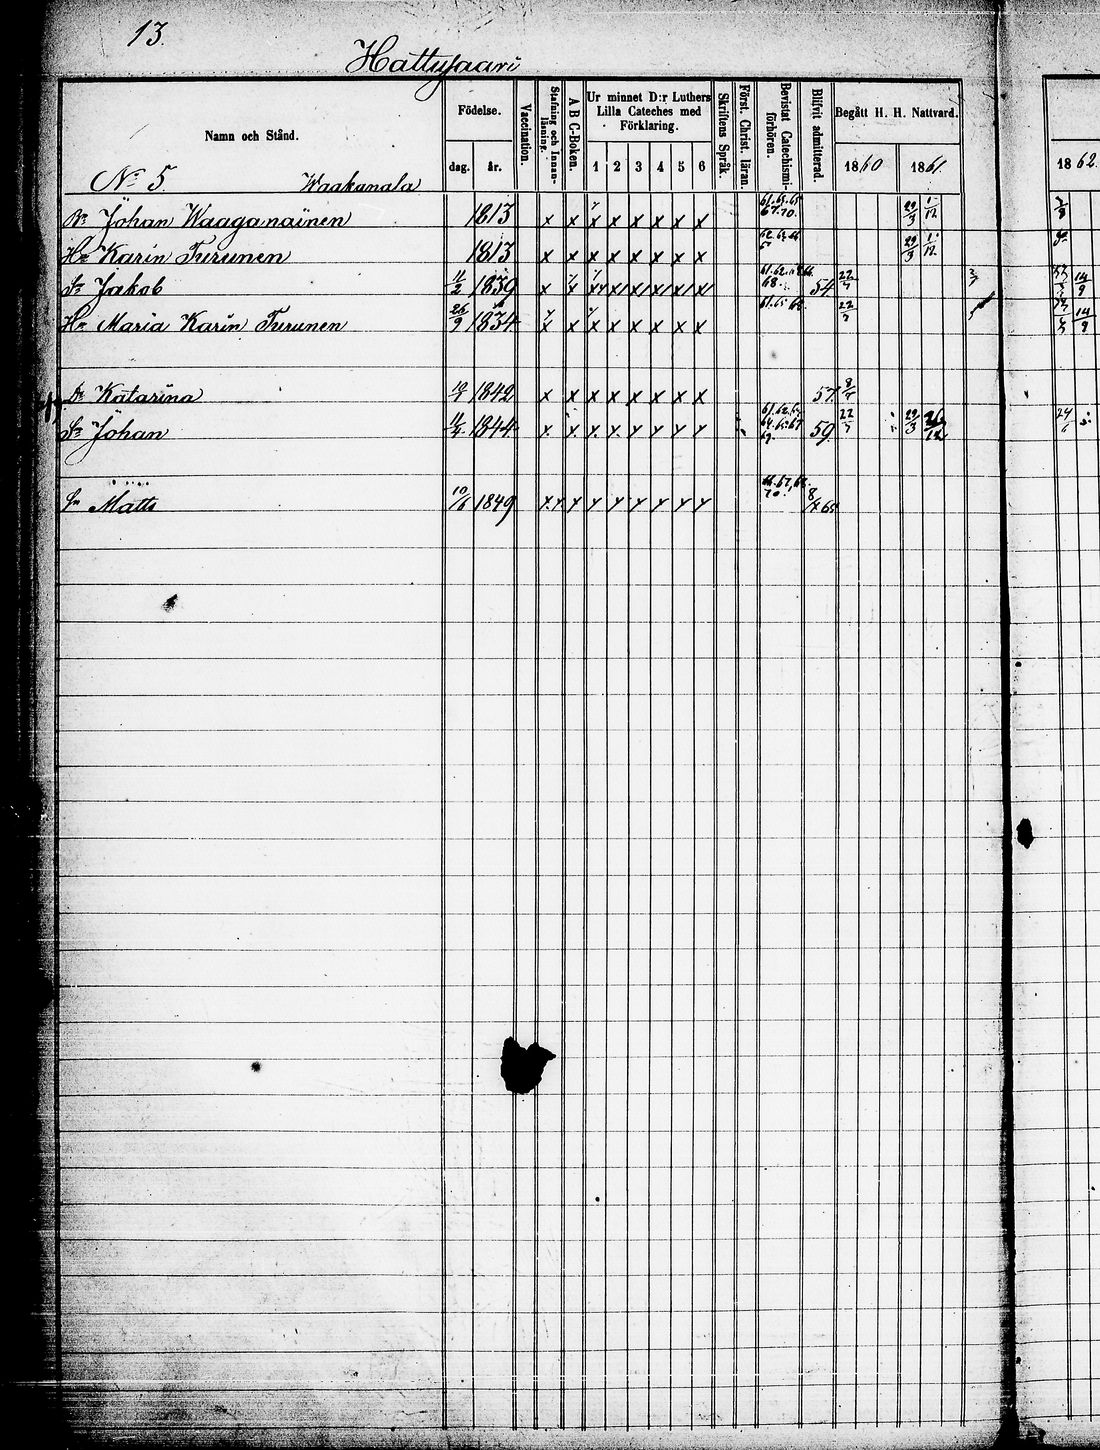 13.
Hattusaari
Namn och Stånd.
Födelse.
dag.
år.
Vaccination.
Stafning och Innanläsning.
A B C-Boken.
Ur minnet D:r Luthers Lilla Cateches med Förklaring.
1 2 3 4 5 6
Skriftens Språk.
Först. Christ. läran.
Bevistat Catechismi-förhören.
Blifvit admitterad.
Begått H. H. Nattvard.
1860 1861. 1862.
No 5. Waakanala
Johan Waaganainen 1813 x x x x x x x x 29/3 1/12
Hu Karin Turunen 1813 x x x x x x x x 29/3 1/12
Sn Jakob 11/2 1839 x x x x x x x x 54. 22/7 14/9
Hu Maria Karin Turunen 26/9 1834 x x x x x x x x 61.65 22/7 14/9
Dr Katarina 1842 x x x x x x x x 57. 8/7
Sn Johan 1844 x x x x x x x x 59. 22/7 29/3
Sn Matts 10/6 1849 x x x x x x x x 70. 8/7 65